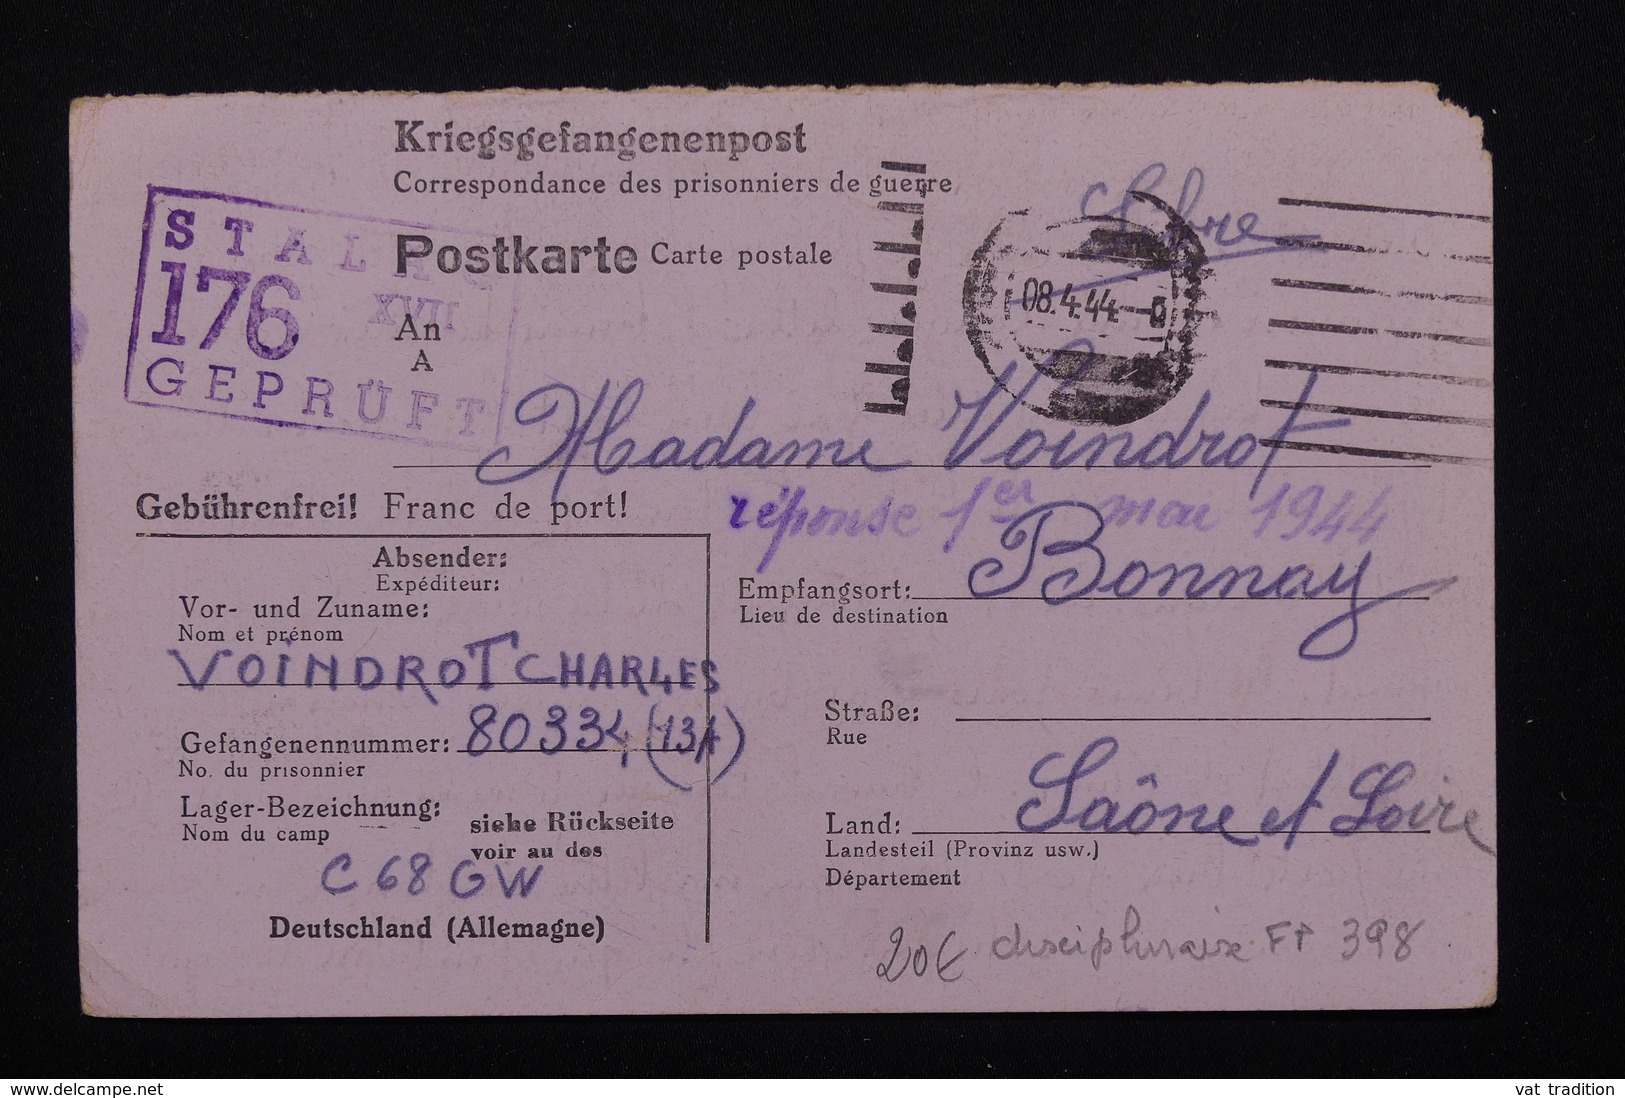 Kriegsgefangenenpost
Correspondance des prisonniers de guerre
Postkarte Carte postale
STALAG
XVII
176
GEPRÜFT
08.4.44
An
A
Madame Voindrot
réponse 1er mai 1944
Gebührenfrei! Franc de port!
Absender:
Expéditeur:
Vor- und Zuname:
Nom et prénom
VOINDROT CHARLES
Gefangenennummer: 80334 (13A)
No. du prisonnier
Lager-Bezeichnung:
Nom du camp
siehe Rückseite
voir au dos
C 68 GW
Deutschland (Allemagne)
Empfangsort: Bonnay
Lieu de destination
Straße:
Rue
Land: Saône et Loire
Landesteil (Provinz usw.)
Département
20€ disciplinaire FT 398
www.delcampe.net
vat tradition